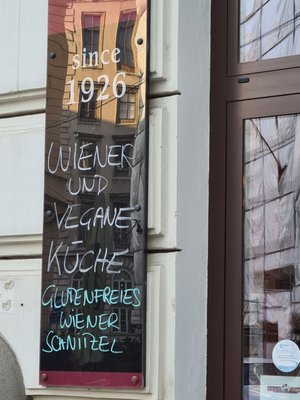 since
1926
WIENER
UND
VEGANE
KÜCHE
GLUTENFREIES
WIENER
SCHNITZEL